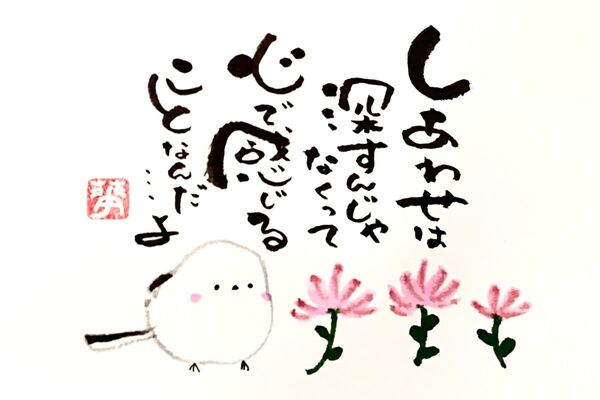 しあわせは
深すんじゃ
なくって
心で、感じる
ことなんだ
…よ